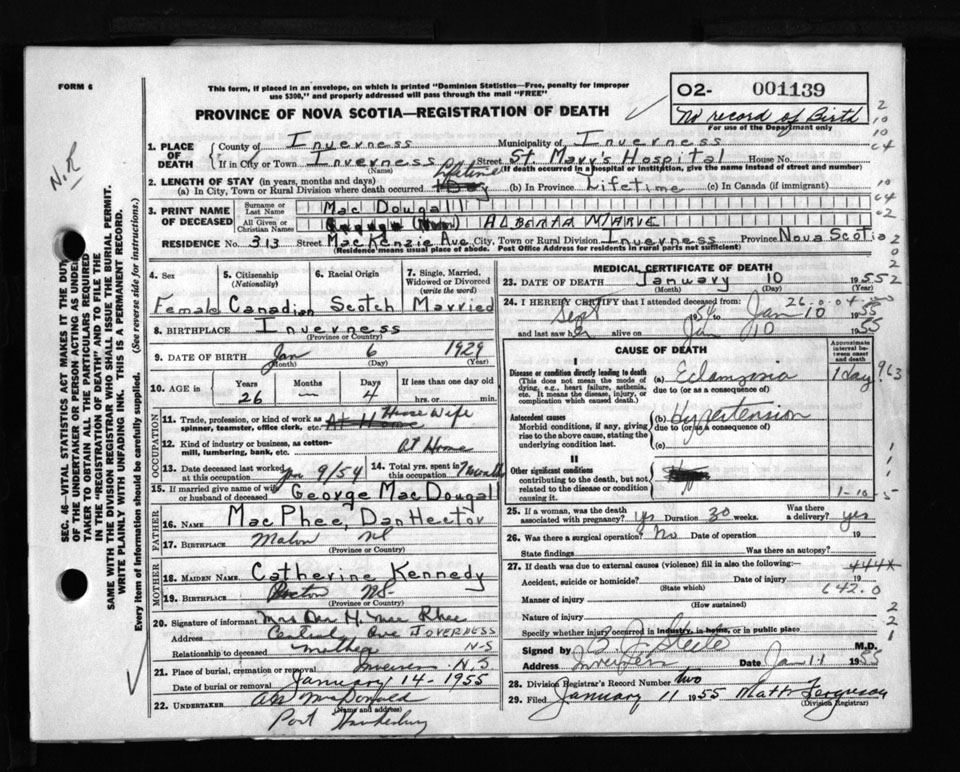 FORM 6
This form, if placed in an envelope, on which is printed "Dominion Statistics—Free, penalty for improper
use $300," and properly addressed will pass through the mail "FREE"
PROVINCE OF NOVA SCOTIA—REGISTRATION OF DEATH
02- 001139
No record of Birth
For use of the Department only
N.R
SEC. 46—VITAL STATISTICS ACT MAKES IT THE DUTY
OF THE UNDERTAKER OR PERSON ACTING AS UNDER-
TAKER TO OBTAIN ALL THE PARTICULARS REQUIRED
IN THE "REGISTRATION OF DEATH" AND TO FILE THE
SAME WITH THE DIVISION REGISTRAR WHO SHALL ISSUE THE BURIAL PERMIT.
WRITE PLAINLY WITH UNFADING INK. THIS IS A PERMANENT RECORD.
Every item of information should be carefully supplied. (See reverse side for instructions.)
1. PLACE OF DEATH County of Inverness Municipality of Inverness
If in City or Town Inverness Street St. Mary's Hospital House No.
(Name) (If death occurred in a hospital or institution, give the name instead of street and number)
2. LENGTH OF STAY (in years, months and days)
(a) In City, Town or Rural Division where death occurred Lifetime (b) In Province Lifetime (c) In Canada (if immigrant)
3. PRINT NAME OF DECEASED Surname or Last Name Mac Dougall
All Given or Christian Names ALBERTA MARIE
RESIDENCE No. 313 Street MacKenzie Ave. City, Town or Rural Division Inverness Province Nova Scotia
(Residence means usual place of abode. Post Office Address for residents in rural parts not sufficient)
4. Sex Female
5. Citizenship (Nationality) Canadian
6. Racial Origin Scotch
7. Single, Married, Widowed or Divorced (write the word) Married
8. BIRTHPLACE Inverness
(Province or Country)
9. DATE OF BIRTH Jan 6 1929
(Month) (Day) (Year)
10. AGE in Years 26 Months — Days 4 If less than one day old hrs. or min.
OCCUPATION
11. Trade, profession, or kind of work as spinner, teamster, office clerk, etc. At Home House Wife
12. Kind of industry or business, as cotton-mill, lumbering, bank, etc. At Home
13. Date deceased last worked at this occupation 9/54
14. Total yrs. spent in this occupation
15. If married give name of wife or husband of deceased George MacDougall
FATHER
16. NAME MacPhee, Dan Hector
17. BIRTHPLACE Mabou NS
(Province or Country)
MOTHER
18. MAIDEN NAME Catherine Kennedy
19. BIRTHPLACE NS
(Province or Country)
20. Signature of informant Mrs Dan H. Mac Phee
Address Central Ave INVERNESS
Relationship to deceased Mother N-S
21. Place of burial, cremation or removal Inverness N.S.
Date of burial or removal January 14-1955
22. UNDERTAKER MacDonald
(Name and address)
Port Hawkesbury
MEDICAL CERTIFICATE OF DEATH
23. DATE OF DEATH January 10 1955
(Month) (Day) (Year)
24. I HEREBY CERTIFY that I attended deceased from:
Sept 1954 to Jan 10 1955
and last saw her alive on Jan 10 1955
CAUSE OF DEATH
Approximate interval between onset and death
I
Disease or condition directly leading to death
(This does not mean the mode of dying, e.g., heart failure, asthenia, etc. It means the disease, injury, or complication which caused death.)
(a) Eclampsia 1 day 963
due to (or as a consequence of)
Antecedent causes
Morbid conditions, if any, giving rise to the above cause, stating the underlying condition last.
(b) Hypertension
due to (or as a consequence of)
(c)
II
Other significant conditions
contributing to the death, but not related to the disease or condition causing it.
25. If a woman, was the death associated with pregnancy? yes Duration 30 weeks. Was there a delivery? yes
26. Was there a surgical operation? No Date of operation 19
State findings Was there an autopsy?
27. If death was due to external causes (violence) fill in also the following:— 444X
Accident, suicide or homicide? Date of injury 19
(State which) 642.0
Manner of injury
(How sustained)
Nature of injury
Specify whether injury occurred in industry, in home, or in public place
Signed by M.D.
Address Inverness Date Jan 11 1955
28. Division Registrar's Record Number two
29. Filed January 11 1955 Matt Ferguson
(Division Registrar)